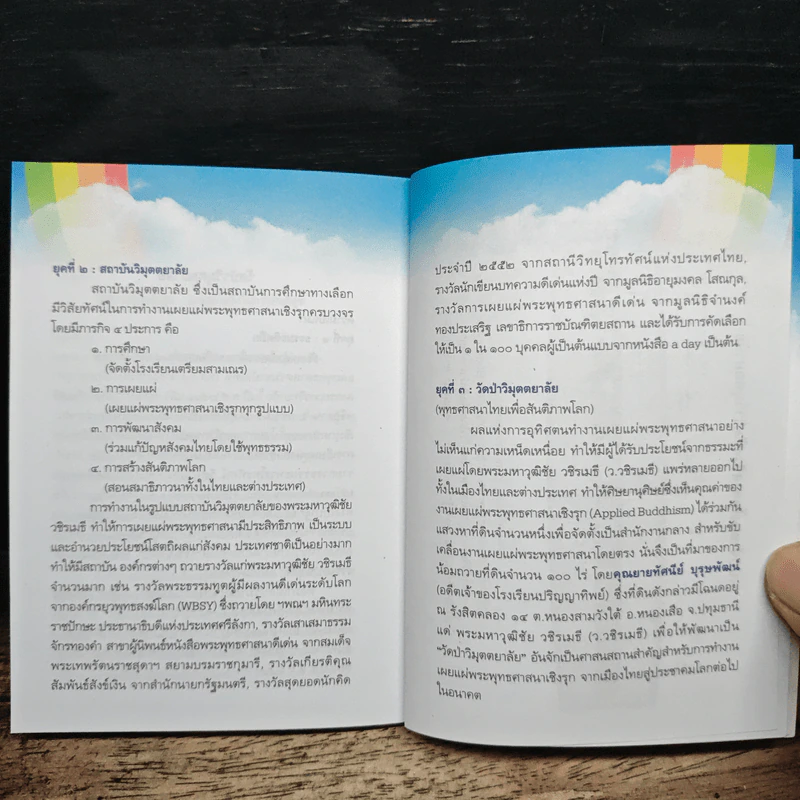 ยุคที่ ๒ : สถาบันวิมุตตยาลัย
สถาบันวิมุตตยาลัย ซึ่งเป็นสถาบันการศึกษาทางเลือก
มีวิสัยทัศน์ในการทำงานเผยแผ่พระพุทธศาสนาเชิงรุกครบวงจร
โดยมีภารกิจ ๔ ประการ คือ
๑. การศึกษา
(จัดตั้งโรงเรียนเตรียมสามเณร)
๒. การเผยแผ่
(เผยแผ่พระพุทธศาสนาเชิงรุกทุกรูปแบบ)
๓. การพัฒนาสังคม
(ร่วมแก้ปัญหาสังคมไทยโดยใช้พุทธธรรม)
๔. การสร้างสันติภาพโลก
(สอนสมาธิภาวนาทั้งในไทยและต่างประเทศ)
การทำงานในรูปแบบสถาบันวิมุตตยาลัยของพระมหาวุฒิชัย
วชิรเมธี ทำให้การเผยแผ่พระพุทธศาสนามีประสิทธิภาพ เป็นระบบ
และอำนวยประโยชน์โสตถิผลแก่สังคม ประเทศชาติเป็นอย่างมาก
ทำให้มีสถาบัน องค์กรต่างๆ ถวายรางวัลแก่พระมหาวุฒิชัย วชิรเมธี
จำนวนมาก เช่น รางวัลพระธรรมทูตผู้มีผลงานดีเด่นระดับโลก
จากองค์กรยุวพุทธสงฆ์โลก (WBSY) ซึ่งถวายโดย ฯพณฯ มหินทะ
ราชปักษะ ประธานาธิบดีแห่งประเทศศรีลังกา, รางวัลเสาเสมาธรรม
จักรทองคำ สาขาผู้นิพนธ์หนังสือพระพุทธศาสนาดีเด่น จากสมเด็จ
พระเทพรัตนราชสุดาฯ สยามบรมราชกุมารี, รางวัลเกียรติคุณ
สัมพันธ์สังข์เงิน จากสำนักนายกรัฐมนตรี, รางวัลสุดยอดนักคิด
ประจำปี ๒๕๕๒ จากสถานีวิทยุโทรทัศน์แห่งประเทศไทย,
รางวัลนักเขียนบทความดีเด่นแห่งปี จากมูลนิธิอายุมงคล โสณกุล,
รางวัลการเผยแผ่พระพุทธศาสนาดีเด่น จากมูลนิธิจำนงค์
ทองประเสริฐ เลขาธิการราชบัณฑิตยสถาน และได้รับการคัดเลือก
ให้เป็น ๑ ใน ๑๐๐ บุคคลผู้เป็นต้นแบบจากหนังสือ a day เป็นต้น
ยุคที่ ๓ : วัดป่าวิมุตตยาลัย
(พุทธศาสนาไทยเพื่อสันติภาพโลก)
ผลแห่งการอุทิศตนทำงานเผยแผ่พระพุทธศาสนาอย่าง
ไม่เห็นแก่ความเหน็ดเหนื่อย ทำให้มีผู้ได้รับประโยชน์จากธรรมะที่
เผยแผ่โดยพระมหาวุฒิชัย วชิรเมธี (ว.วชิรเมธี) แพร่หลายออกไป
ทั้งในเมืองไทยและต่างประเทศ ทำให้ศิษยานุศิษย์ซึ่งเห็นคุณค่าของ
งานเผยแผ่พระพุทธศาสนาเชิงรุก (Applied Buddhism) ได้ร่วมกัน
แสวงหาที่ดินจำนวนหนึ่งเพื่อจัดตั้งเป็นสำนักงานกลาง สำหรับขับ
เคลื่อนงานเผยแผ่พระพุทธศาสนาโดยตรง นั่นจึงเป็นที่มาของการ
น้อมถวายที่ดินจำนวน ๑๐๐ ไร่ โดยคุณยายทัศนีย์ บุรุษพัฒน์
(อดีตเจ้าของโรงเรียนปริญญาทิพย์) ซึ่งที่ดินดังกล่าวมีโฉนดอยู่
ณ รังสิตคลอง ๑๔ ต.หนองสามวังใต้ อ.หนองเสือ จ.ปทุมธานี
แด่ พระมหาวุฒิชัย วชิรเมธี (ว.วชิรเมธี) เพื่อให้พัฒนาเป็น
"วัดป่าวิมุตตยาลัย" อันจักเป็นศาสนสถานสำคัญสำหรับการทำงาน
เผยแผ่พระพุทธศาสนาเชิงรุก จากเมืองไทยสู่ประชาคมโลกต่อไป
ในอนาคต